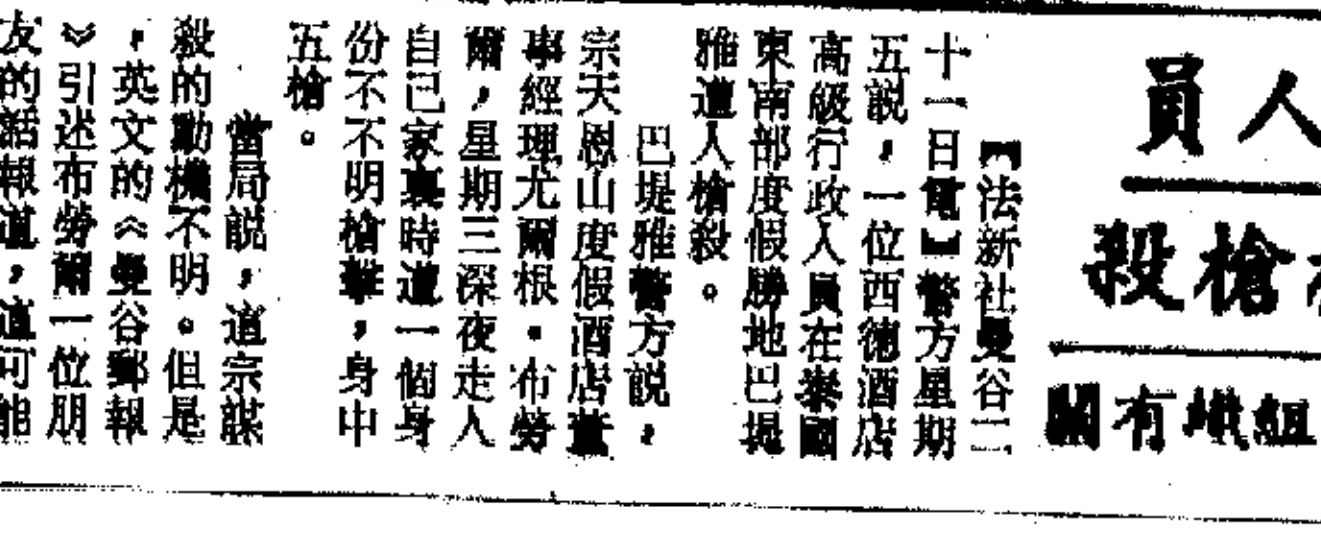 人員
槍殺
組織有關
【法新社曼谷二
十一日電】警方星期
五説，一位西德酒店
高級行政人員在泰國
東南部度假勝地巴堤
雅遭人槍殺。
巴堤雅警方説，
宗天恩山度假酒店董
事經理尤爾根·布勞
爾，星期三深夜走入
自己家裏時遭一個身
份不不明槍擊，身中
五槍。
當局説，這宗謀
殺的動機不明。但是
，英文的《曼谷郵報
》引述布勞爾一位朋
友的話報道，這可能